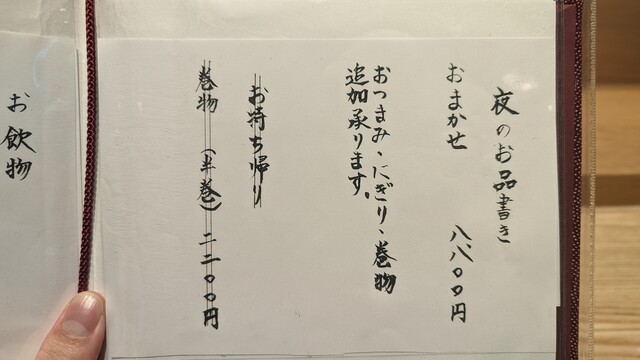 夜のお品書き
おまかせ 八、八〇〇円
おつまみ・にぎり、巻物
追加承ります。
お持ち帰り
巻物 (半巻) 二二〇〇円
お飲物